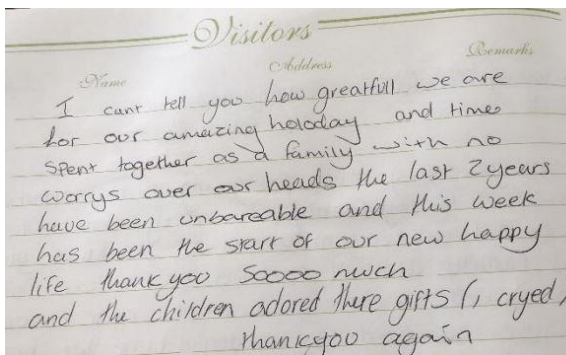 Visitors
Name Address Remarks
I cant tell you how greatfull we are
for our amazing holoday and time
spent together as a family with no
worrys over our heads the last 2 years
have been unbareable and this week
has been the start of our new happy
life thank you soooo much
and the children adored there gifts (, cryed,
thankyou again